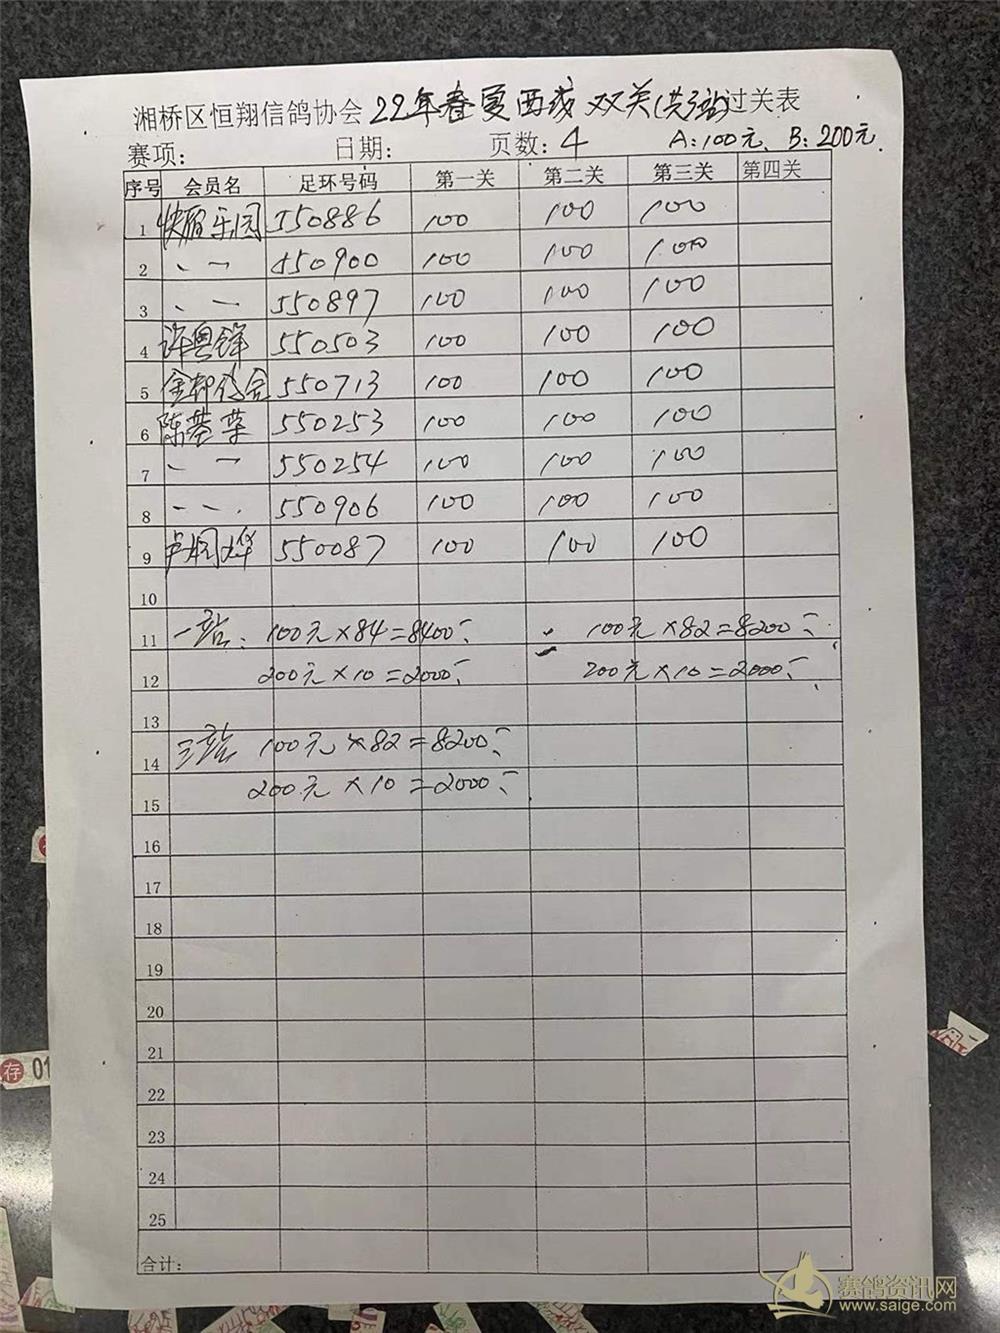 湘桥区恒翔信鸽协会 22年春夏西线 双关(共3站)过关表
赛项: 日期: 页数: 4 A:100元、B:200元.
序号 会员名 足环号码 第一关 第二关 第三关 第四关
1 乐园 550886 100 100 100
2 、一 550900 100 100 100
3 、一 550897 100 100 100
4 许粤锋 550503 100 100 100
5 550713 100 100 100
6 陈 550253 100 100 100
7 、一 550254 100 100 100
8 550906 100 100 100
9 卢 烨 550087 100 100 100
10
11 一站: 100元×84=8400 100元×82=8200
12 200元×10=2000 200元×10=2000
13
14 三站 100元×82=8200
15 200元×10=2000
16
17
18
19
20
21
22
23
24
25
合计:
存 01
赛鸽资讯网
www.saige.com